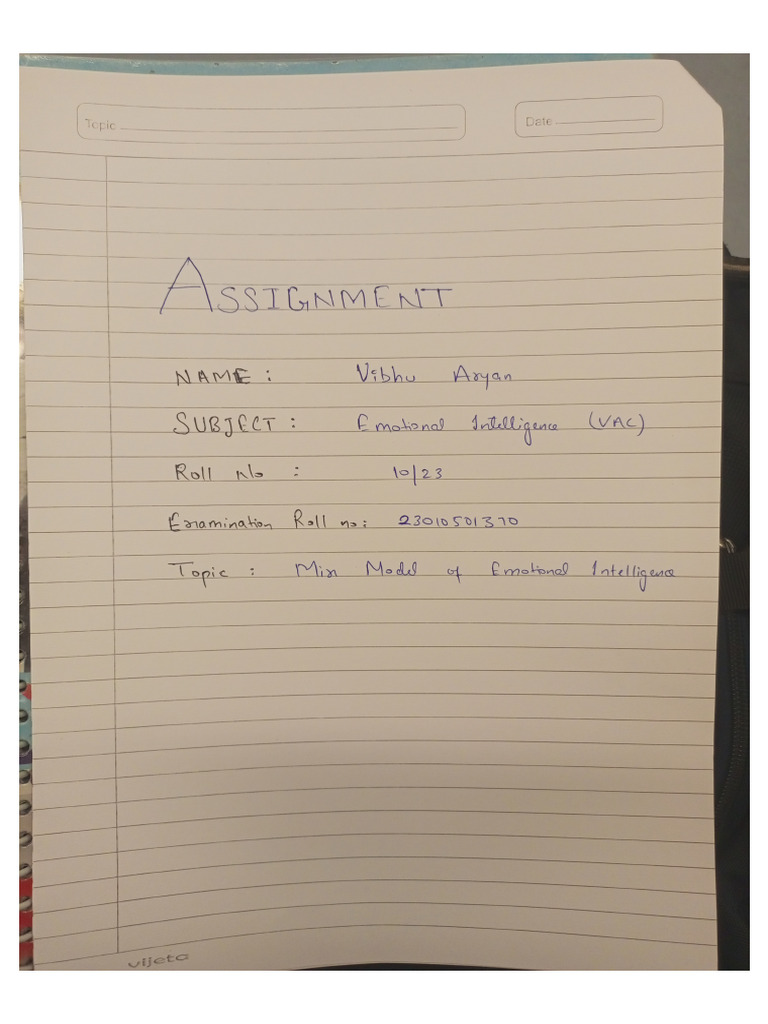 Topic
Date
ASSIGNMENT
NAME : Vibhu Aryan
SUBJECT : Emotional Intelligence (VAC)
Roll No : 10/23
Examination Roll no: 23010501370
Topic : Mix Model of Emotional Intelligence
vijeta